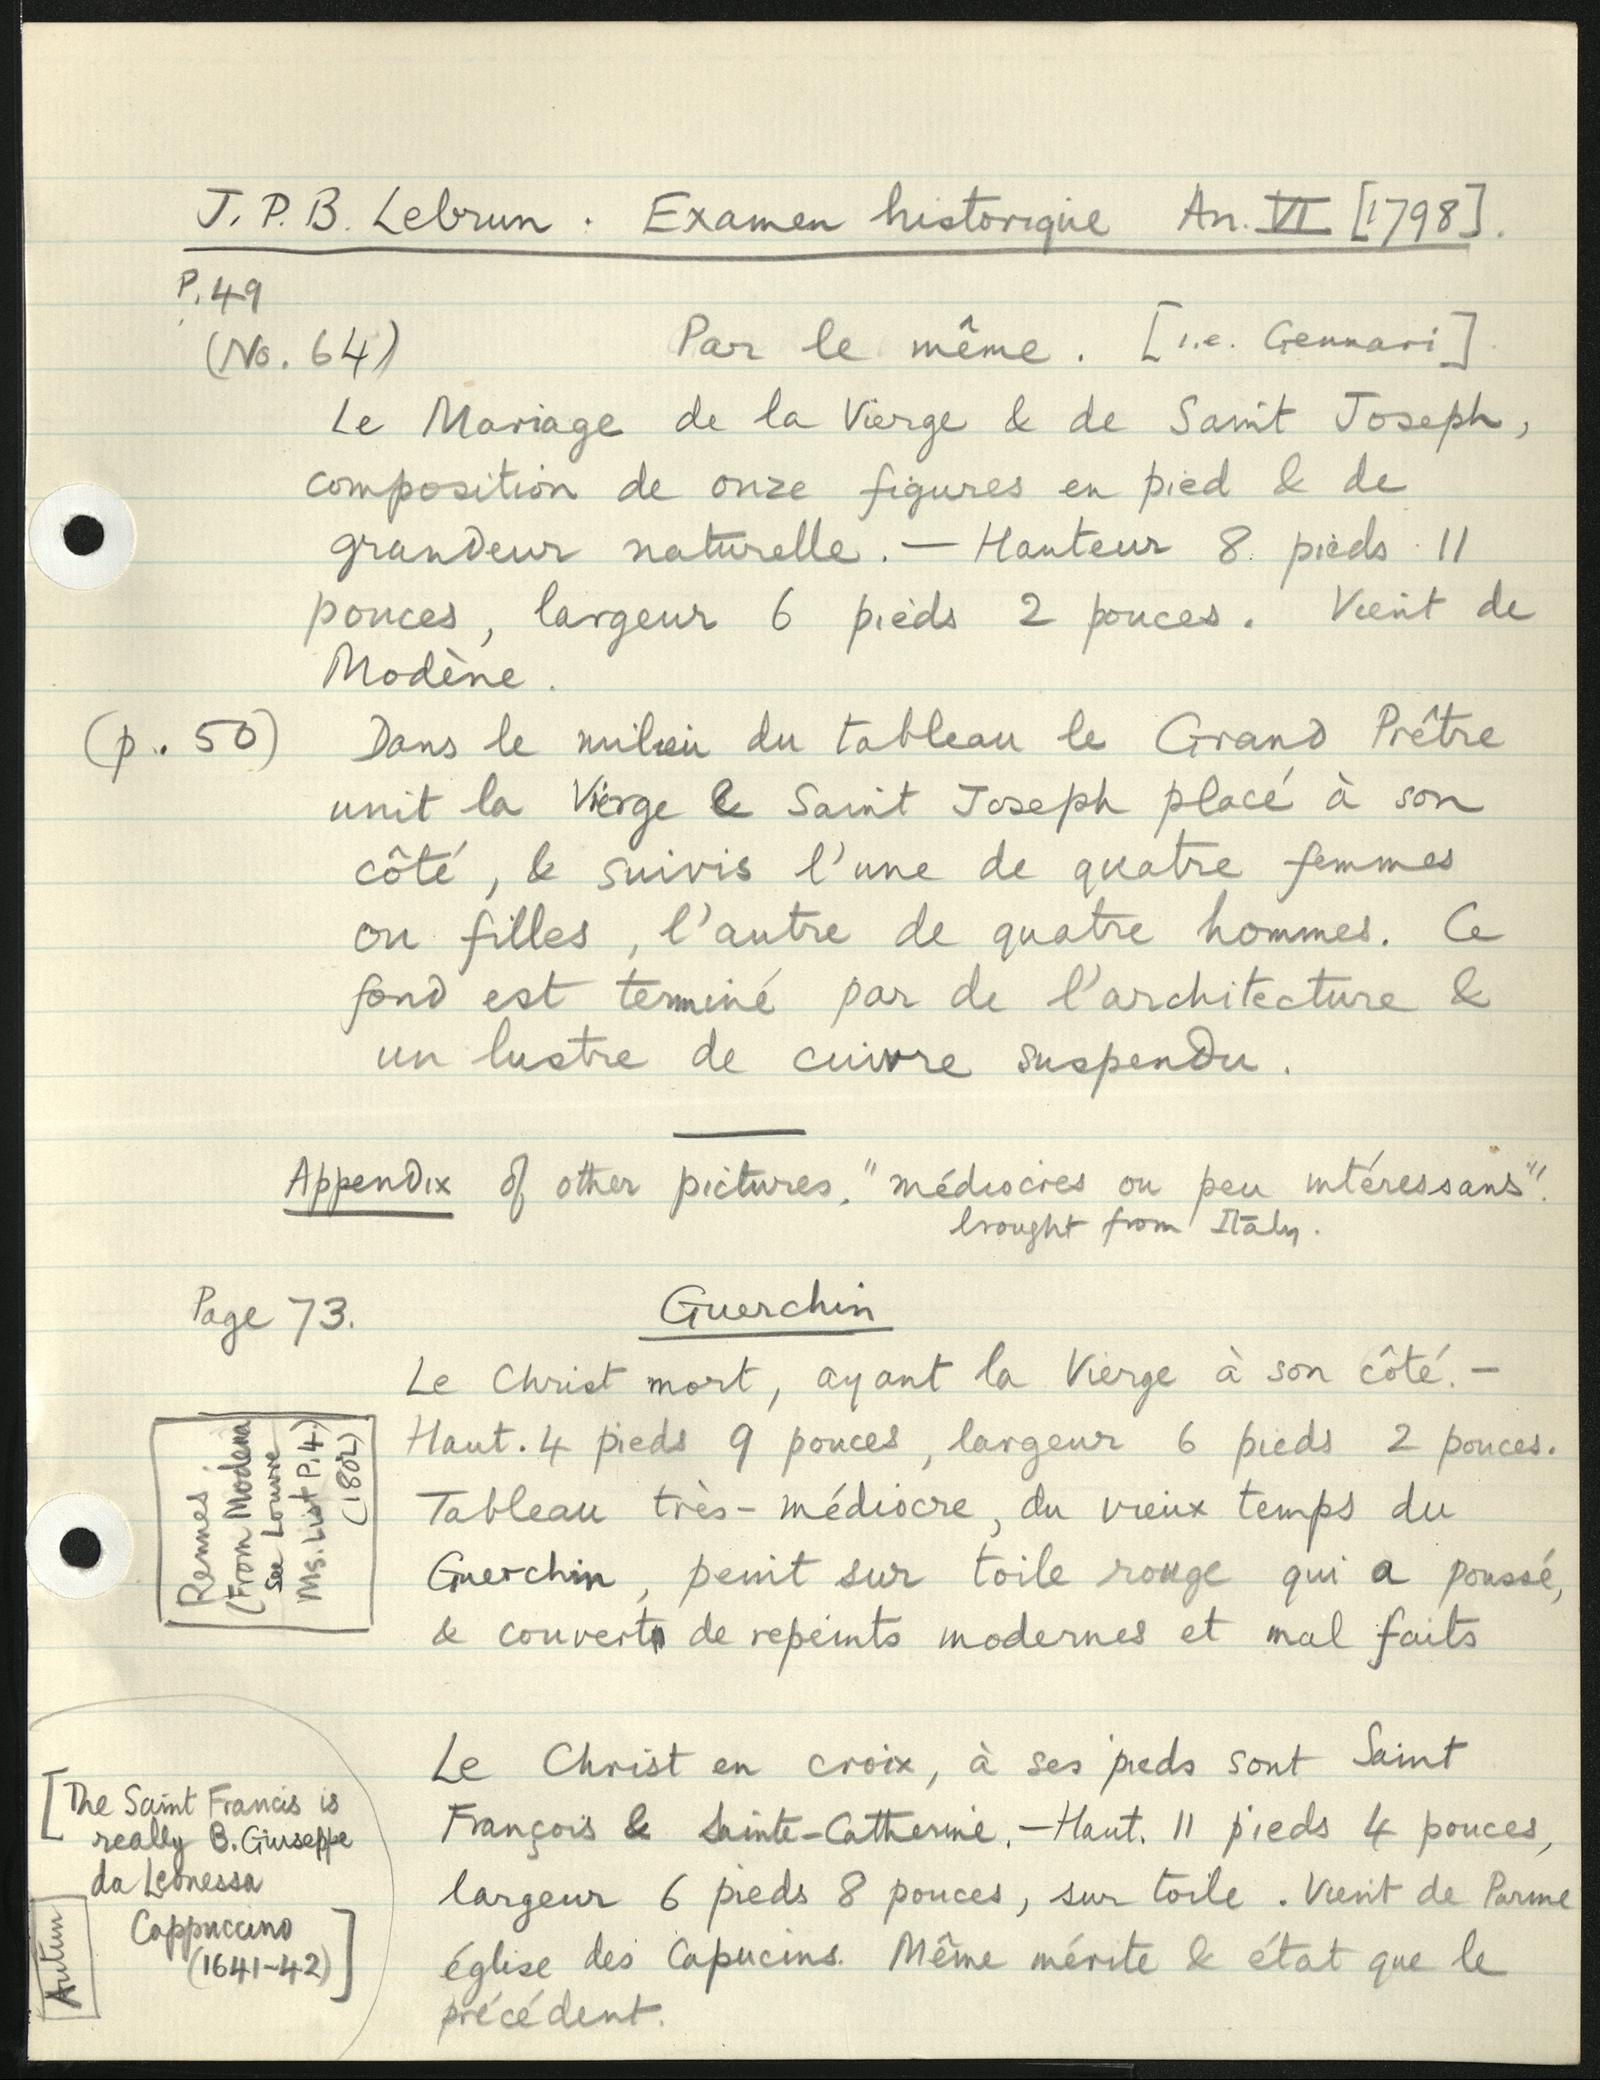 J. P. B. Lebrun. Examen historique An. VI [1798].
P. 49
(No. 64) Par le même. [i.e. Gennari]
Le Mariage de la Vierge & de Saint Joseph,
composition de onze figures en pied & de
grandeur naturelle. — Hauteur 8 pieds 11
pouces, largeur 6 pieds 2 pouces. Vient de
Modène.
(p. 50) Dans le milieu du tableau le Grand Prêtre
unit la Vierge & Saint Joseph placé à son
côté, & suivis l'une de quatre femmes
ou filles, l'autre de quatre hommes. Ce
fond est terminé par de l'architecture &
un lustre de cuivre suspendu.
Appendix of other pictures, "médiocres ou peu intéressans".
brought from Italy.
Page 73. Guerchin
Le Christ mort, ayant la Vierge à son côté. —
Haut. 4 pieds 9 pouces, largeur 6 pieds 2 pouces.
Tableau très-médiocre, du vieux temps du
Guerchin, peint sur toile rouge qui a poussé,
& couvert de repeints modernes et mal faits
Rennes.
(From Modena
see Louvre
Ms. List P. 4.)
(1802)
Le Christ en croix, à ses pieds sont Saint
François & Sainte-Catherine. — Haut. 11 pieds 4 pouces,
largeur 6 pieds 8 pouces, sur toile. Vient de Parme
église des Capucins. Même mérite & état que le
précédent.
[The Saint Francis is
really B. Giuseppe
da Leonessa
Cappuccino
(1641-42)]
Autun